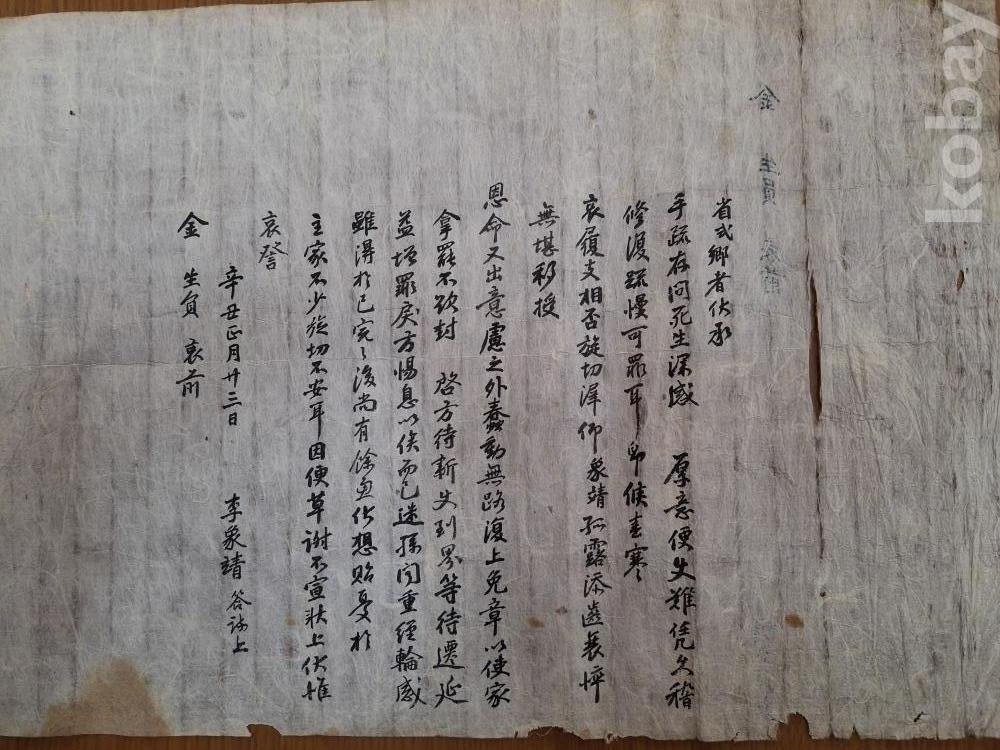 金 生員 哀前
省式鄕者伏承
手疏存問死生深感 厚意便史難凭久稽
修復疏慢可罪耳卽候春寒
哀履支相否旋切溸仰象靖孤露添齒衰悴
無堪移授
恩命又出意慮之外蠢動無路復上免章以使家
拿罷不欲封 啓方待新史到界等待遷延
益增罪戾方惕息以俟而已迷孫間重經輪感
雖得於已完之後尚有餘
想貽憂於
主家不少旋切不安耳因便草謝不宣狀上伏惟
哀詧
辛丑正月廿三日 李象靖 答疏上
金 生員 哀前
kobay